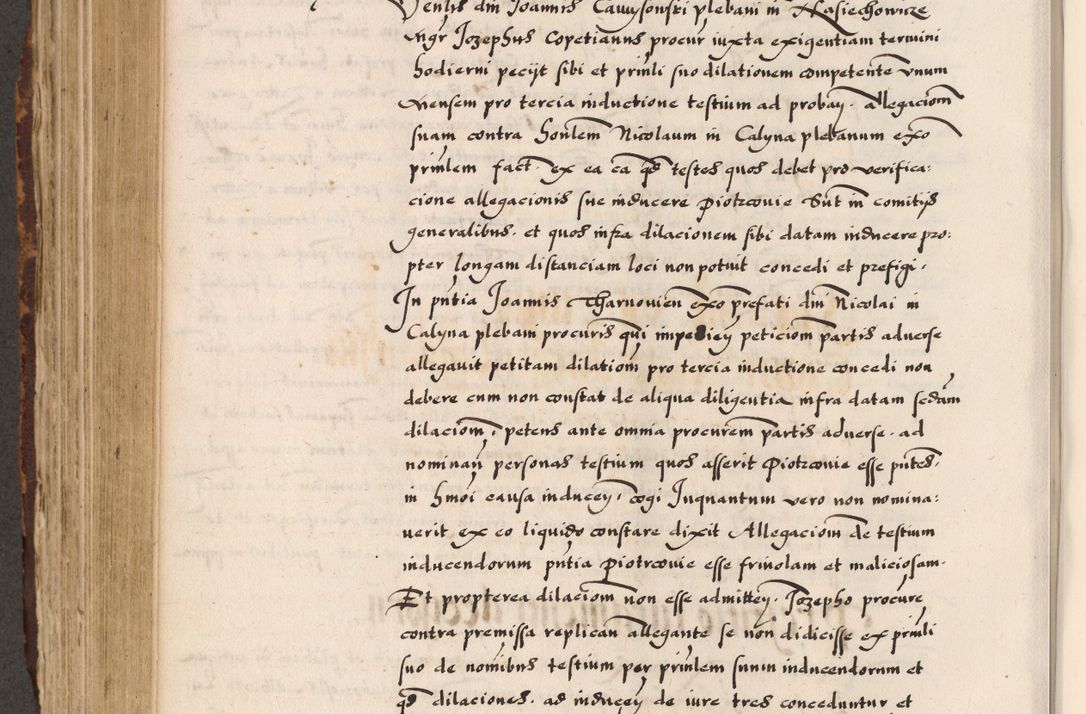 Venlis dni Joannis Cawysowski plebani in Rasiechowicze
Mgr Jozephus Copetianus procur iuxta exigentiam termini
hodierni pecijt sibi et prinli suo dilationem competente vnum
Mensem pro tercia inductione testium ad proban. allegaciom
suam contra honlem Nicolaum in Calyna plebanum exo
prinlem fact. ex ea ca qd testes quos debet pro verifica:
cione allegacionis sue inducere Piotrcovie sut in comitijs
generalibus. et quos infra dilacionem sibi datam inducere pro:
pter longam distanciam loci non potuit concedi et prefigi.
In pntia Joannis Tharnovien exo prefati dni Nicolai in
Calyna plebani procuris qui impedien peticiom partis adverse
allegavit petitam dilatiom pro tercia inductione concedi non
debere cum non constat de aliqua diligentia infra datam sedam
dilaciom, petens ante omnia procurem partis adverse. ad
nominan personas testium quos asserit Piotrcovie esse pntes.
in hmoi causa inducen. cogi Inquantum vero non nomina:
verit ex eo liquido constare dixit Allegaciom de testium
inducendorum pntia Piotrcovie esse frivolam et maliciosam.
Et propterea dilaciom non esse admitten. Jozepho procure
contra premissa replican allegante se non didicisse ex prinli
suo de nomibus testium per prinlem suum inducendorum et
qd dilaciones. ad inducen de iure tres conceduntur et